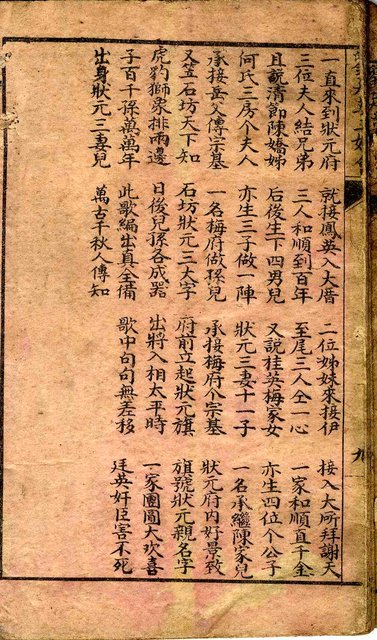 一直來到狀元府 就接鳳英入大厝 二位姊妹來接伊 接入大所拜謝天
三位夫人結兄弟 三人和順到百年 至尾三人仝一心 一家和順直千金
且說清節陳嬌姊 后後生下四男兒 又說桂英梅家女 亦生四位個公子
何氏三房个夫人 亦生三子做一陣 狀元三妻十一子 一名承繼陳家兒
承接岳人傳宗基 一名梅府做孫兒 承接梅府个宗基 狀元府內好景致
又笠石坊天下知 石坊狀元三大字 府前立起狀元旗 旗號狀元親名字
虎豹獅象排兩邊 日後兒孫各成器 出將入相太平時 一家團圓大欢喜
子百千孫萬萬年 此歌編出真全備 歌中句句無差移 廷英奸臣害不死
出身狀元二喜兒 萬古千秋人傳知